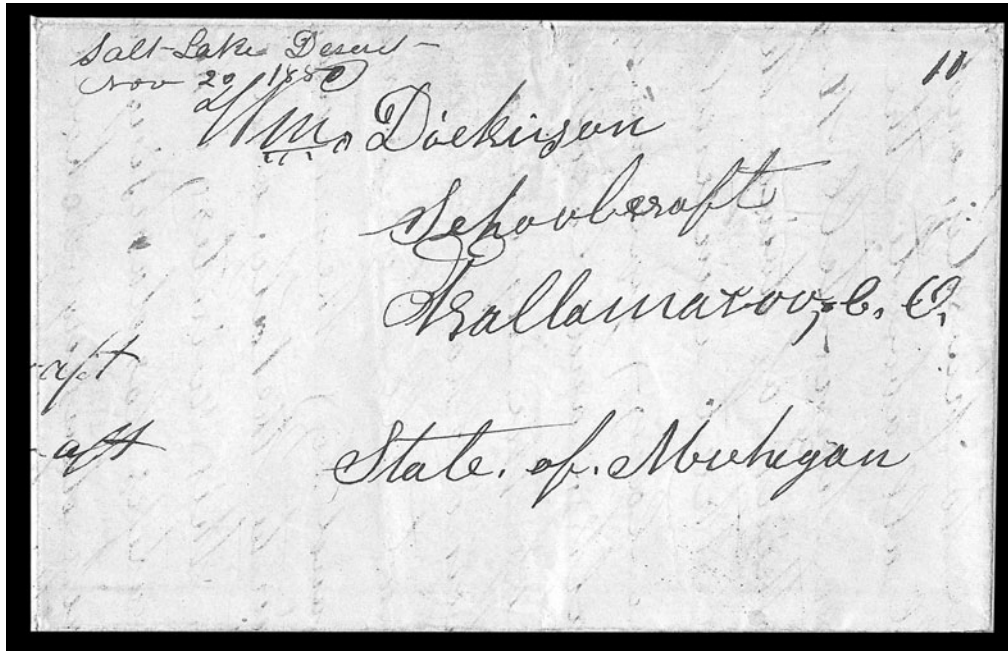 Salt-Lake Deseret-
Nov 20 1850
10
Wm. Dickinson
Schoolcraft
Kallamazoo, C. O.
aft
aft
State. of. Michigan